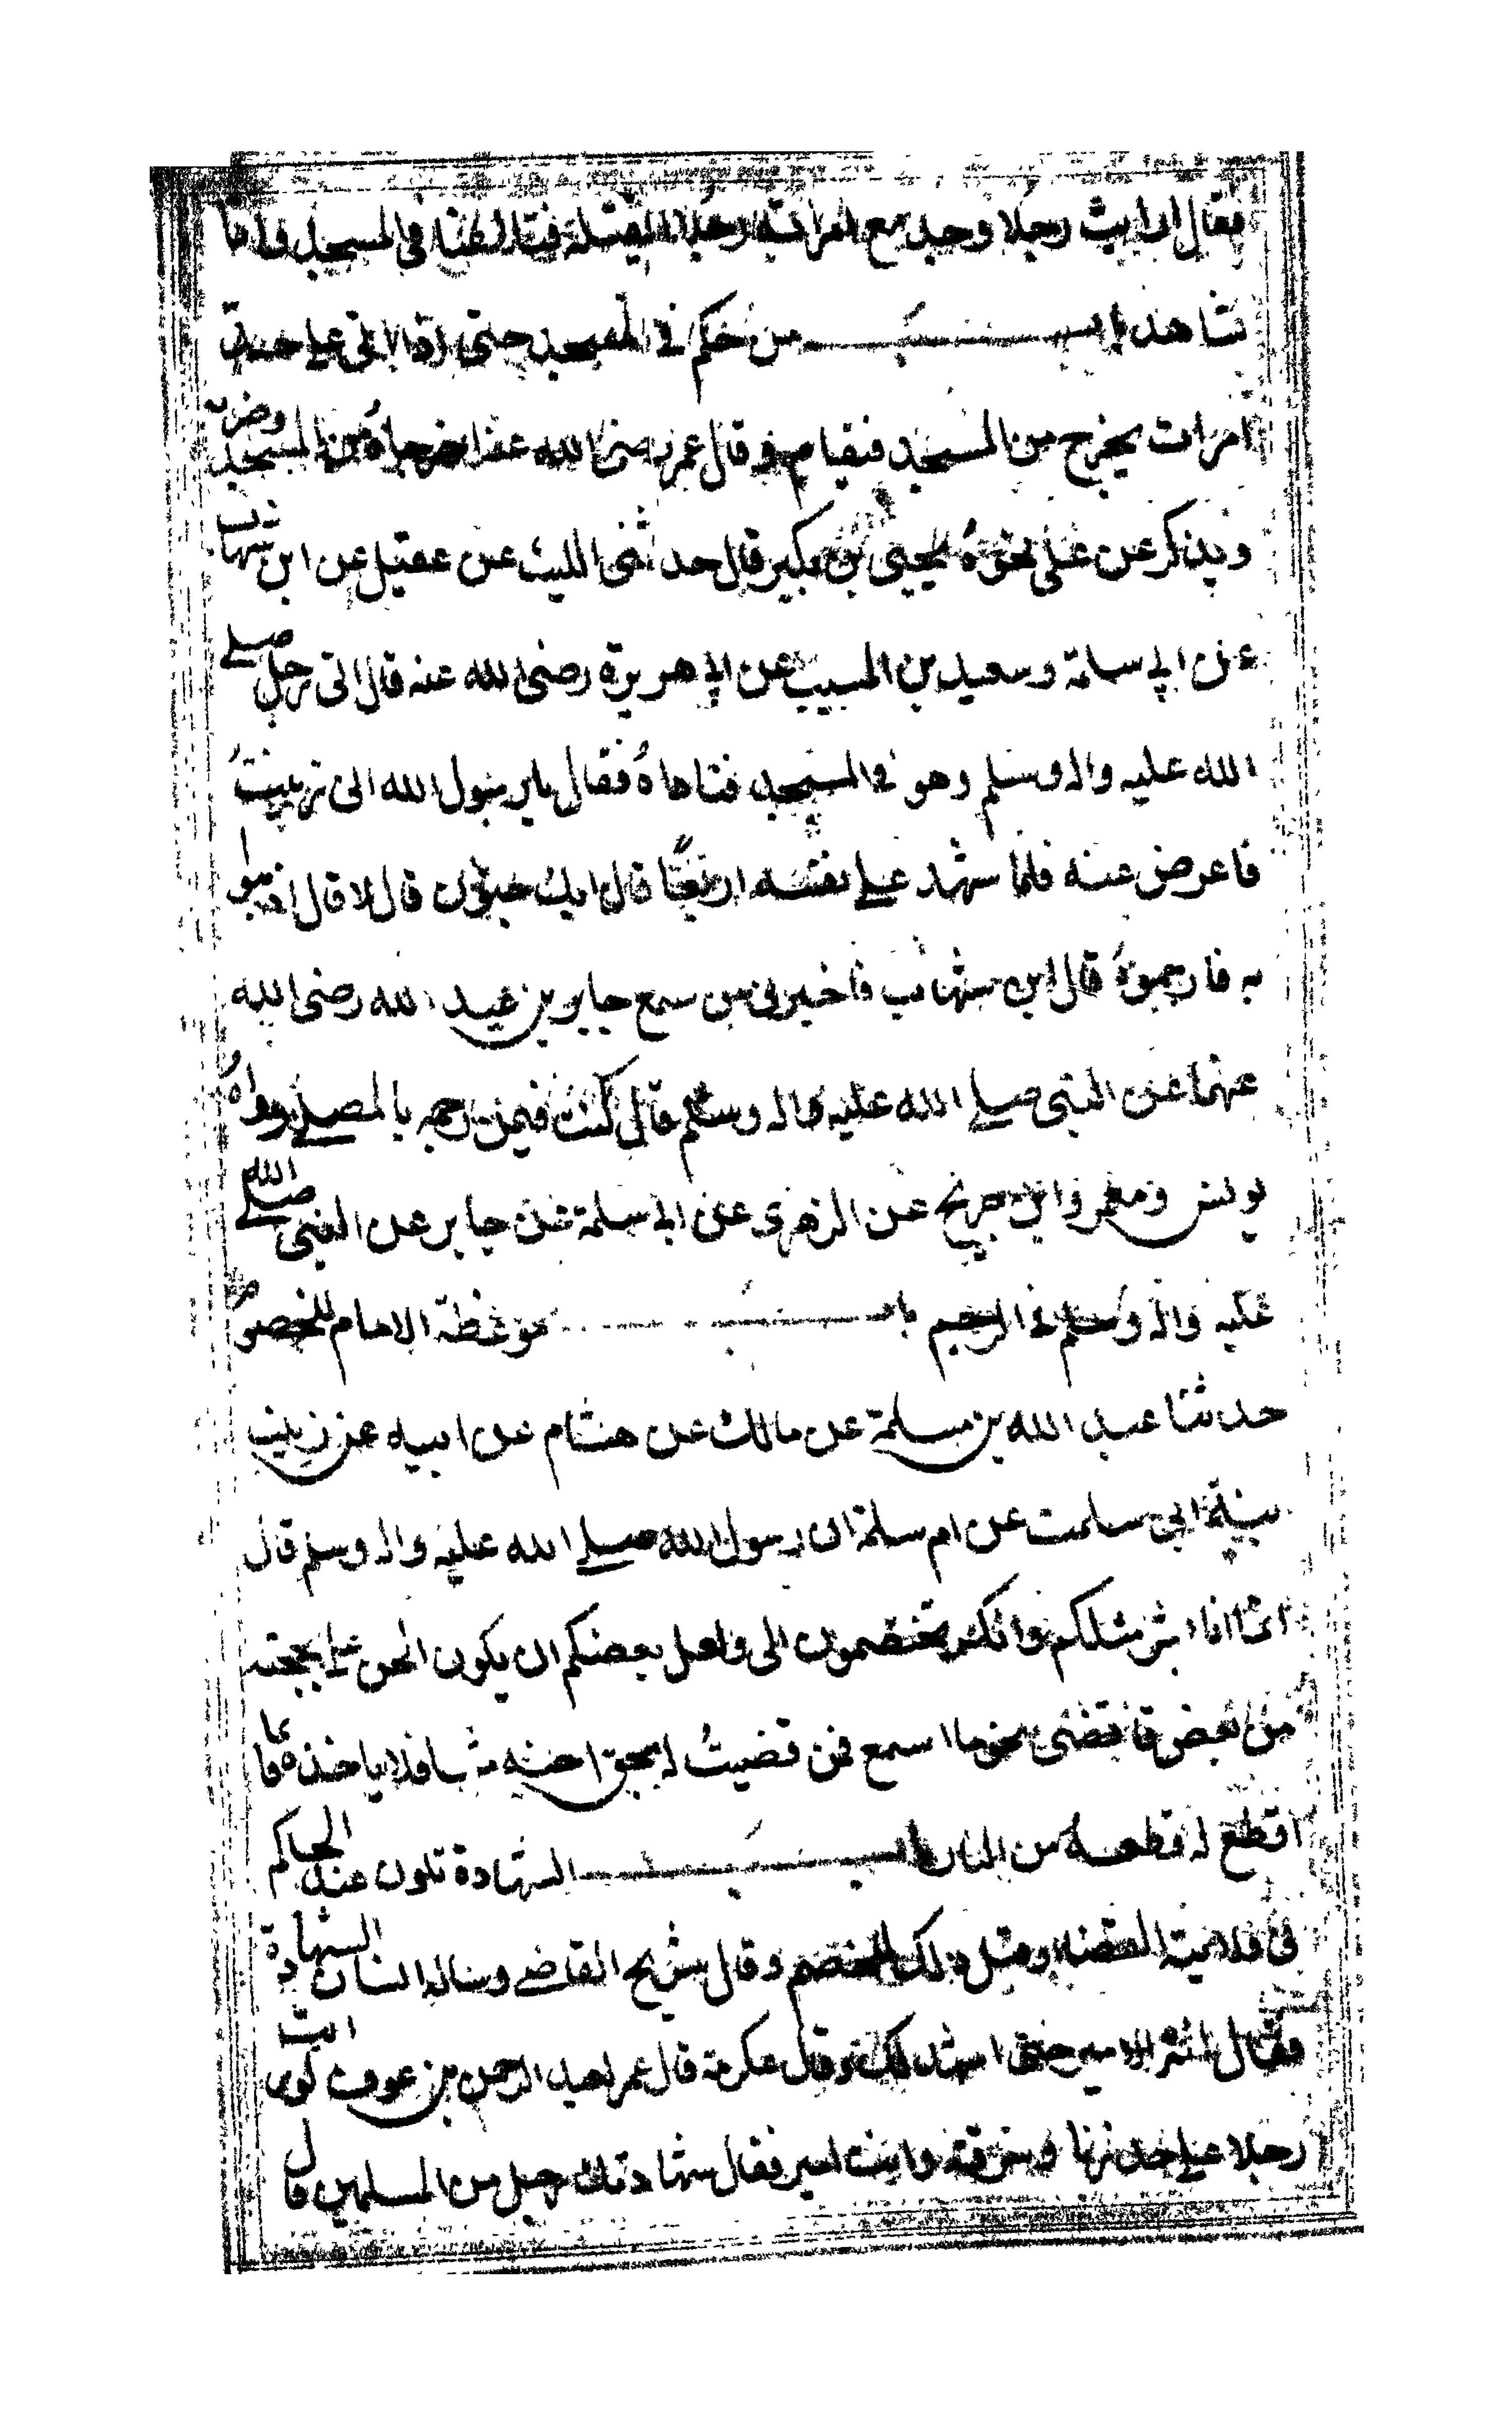 فقال ارايت رجلا وجد مع امراته رجلا ايقتله فتلاعنا في المسجد وانا
شاهد باب من حكم في المسجد حتى اذا اتى على حد
امرات يخرج من المسجد فيقام وقال عمر رضى الله عنه اخرجاه من المسجد وضربه
ويذكر عن على نحوه يحيى بن بكير قال حدثنى الليث عن عقيل عن ابن شهاب
عن ابى سلمة وسعيد بن المسيب عن ابى هريرة رضى الله عنه قال اتى رجل صلى
الله عليه واله وسلم وهو في المسجد فناداه فقال يا رسول الله انى زنيت
فاعرض عنه فلما شهد على نفسه اربعا قال ابك جنون قال لا قال اذهبوا
به فارجموه قال ابن شهاب فاخبرنى من سمع جابر بن عبد الله رضى الله
عنهما عن النبى صلى الله عليه واله وسلم قال كنت فيمن رجمه بالمصلى رواه
يونس ومعمر وابن جريج عن الزهرى عن ابى سلمة عن جابر عن النبى صلى الله
عليه واله وسلم في الرجم باب موعظة الامام للخصوم
حدثنا عبد الله بن مسلمة عن مالك عن هشام عن ابيه عن زينب
بنية ابى سلمت عن ام سلمة ان رسول الله صلى الله عليه واله وسلم قال
انما انا بشر مثلكم وانكم تختصمون الى ولعل بعضكم ان يكون الحن بحجته
من بعض فاقضى نحو ما اسمع فمن قضيت له بحق اخيه شيا فلا ياخذه فانما
اقطع له قطعة من النار باب الشهادة تكون عند الحاكم
في ولايته القضا او قبل ذلك للخصم وقال شريح القاضى وساله انسان الشهادة
فقال ائت الامير حتى اشهد لك وقال عكرمة قال عمر لعبد الرحمن بن عوف لو رايت
رجلا على حد زنا وسرقة وانت امير فقال شهادتك رجل من المسلمين قال